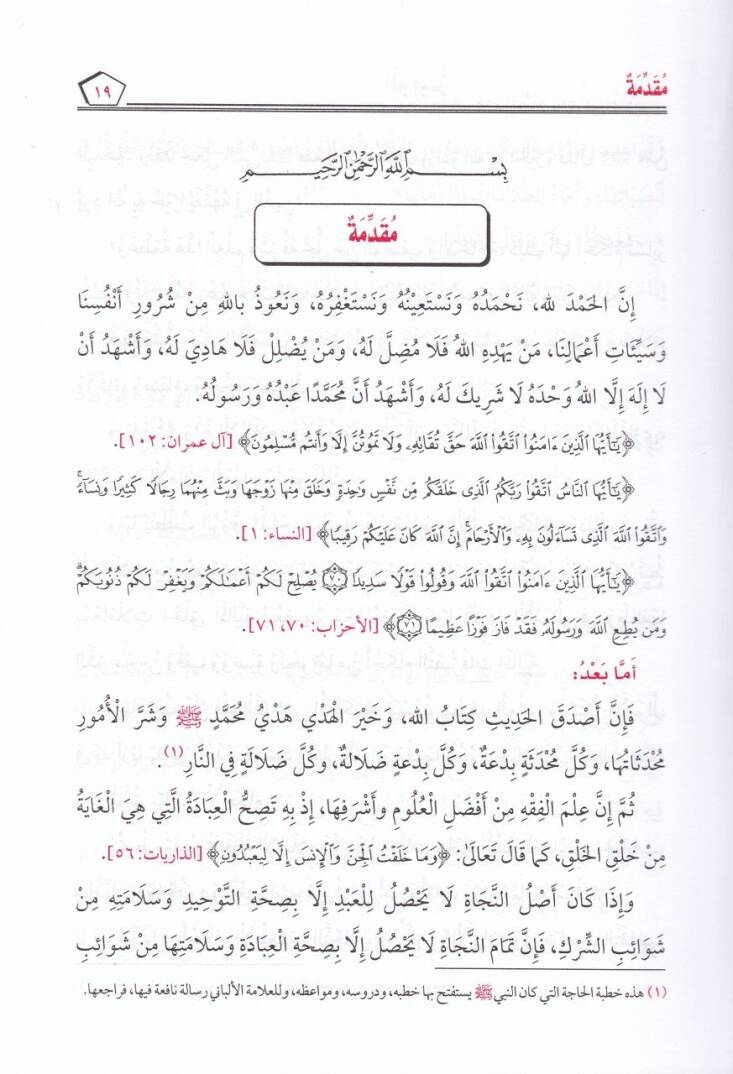 مُقَدِّمَةٌ
١٩
بِسْمِ ٱللَّهِ ٱلرَّحْمَٰنِ ٱلرَّحِيمِ
مُقَدِّمَةٌ
إِنَّ الحَمْدَ لله، نَحْمَدُهُ وَنَسْتَعِينُهُ وَنَسْتَغْفِرُهُ، وَنَعُوذُ بالله مِنْ شُرُورِ أَنْفُسِنَا
وَسَيِّئَاتِ أَعْمَالِنَا، مَنْ يَهْدِهِ اللهُ فَلَا مُضِلَّ لَهُ، وَمَنْ يُضْلِلْ فَلَا هَادِيَ لَهُ، وَأَشْهَدُ أَنْ
لَا إِلَهَ إِلَّا اللهُ وَحْدَهُ لَا شَرِيكَ لَهُ، وَأَشْهَدُ أَنَّ مُحَمَّدًا عَبْدُهُ وَرَسُولُهُ.
﴿يَٰٓأَيُّهَا ٱلَّذِينَ ءَامَنُوا۟ ٱتَّقُوا۟ ٱللَّهَ حَقَّ تُقَاتِهِۦ وَلَا تَمُوتُنَّ إِلَّا وَأَنتُم مُّسْلِمُونَ﴾ [آل عمران: ١٠٢].
﴿يَٰٓأَيُّهَا ٱلنَّاسُ ٱتَّقُوا۟ رَبَّكُمُ ٱلَّذِى خَلَقَكُم مِّن نَّفْسٍ وَٰحِدَةٍ وَخَلَقَ مِنْهَا زَوْجَهَا وَبَثَّ مِنْهُمَا رِجَالًا كَثِيرًا وَنِسَآءً ۚ
وَٱتَّقُوا۟ ٱللَّهَ ٱلَّذِى تَسَآءَلُونَ بِهِۦ وَٱلْأَرْحَامَ ۚ إِنَّ ٱللَّهَ كَانَ عَلَيْكُمْ رَقِيبًا﴾ [النساء: ١].
﴿يَٰٓأَيُّهَا ٱلَّذِينَ ءَامَنُوا۟ ٱتَّقُوا۟ ٱللَّهَ وَقُولُوا۟ قَوْلًا سَدِيدًا ۝٧٠ يُصْلِحْ لَكُمْ أَعْمَٰلَكُمْ وَيَغْفِرْ لَكُمْ ذُنُوبَكُمْ ۗ
وَمَن يُطِعِ ٱللَّهَ وَرَسُولَهُۥ فَقَدْ فَازَ فَوْزًا عَظِيمًا ۝٧١﴾ [الأحزاب: ٧٠، ٧١].
أَمَّا بَعْدُ:
فَإِنَّ أَصْدَقَ الحَدِيثِ كِتَابُ الله، وَخَيْرَ الْهَدْيِ هَدْيُ مُحَمَّدٍ ﷺ وَشَرَّ الْأُمُورِ
مُحْدَثَاتُهَا، وَكُلَّ مُحْدَثَةٍ بِدْعَةٌ، وَكُلَّ بِدْعَةٍ ضَلَالَةٌ، وَكُلَّ ضَلَالَةٍ فِي النَّارِ(١).
ثُمَّ إِنَّ عِلْمَ الْفِقْهِ مِنْ أَفْضَلِ الْعُلُومِ وَأَشْرَفِهَا، إِذْ بِهِ تَصِحُّ الْعِبَادَةُ الَّتِي هِيَ الْغَايَةُ
مِنْ خَلْقِ الخَلْقِ، كَمَا قَالَ تَعَالَىٰ: ﴿وَمَا خَلَقْتُ ٱلْجِنَّ وَٱلْإِنسَ إِلَّا لِيَعْبُدُونِ﴾ [الذاريات: ٥٦].
وَإِذَا كَانَ أَصْلُ النَّجَاةِ لَا يَحْصُلُ لِلْعَبْدِ إِلَّا بِصِحَّةِ التَّوْحِيدِ وَسَلَامَتِهِ مِنْ
شَوَائِبِ الشِّرْكِ، فَإِنَّ تَمَامَ النَّجَاةِ لَا يَحْصُلُ إِلَّا بِصِحَّةِ الْعِبَادَةِ وَسَلَامَتِهَا مِنْ شَوَائِبِ
(١) هذه خطبة الحاجة التي كان النبي ﷺ يستفتح بها خطبه، ودروسه، ومواعظه، وللعلامة الألباني رسالة نافعة فيها، فراجعها.